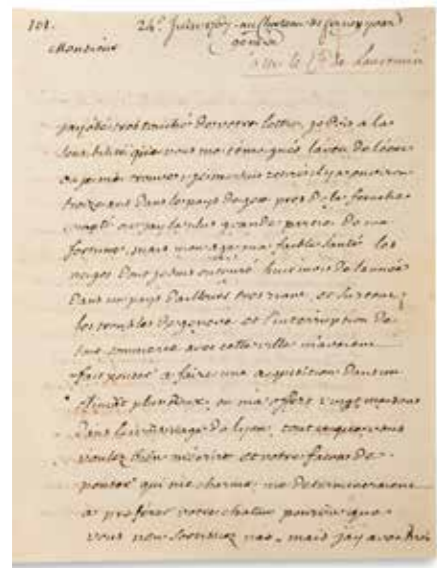 101. 24e Juin 1767 au chateau de ferney par
Monsieur geneve
a Mr le Cte de Lauremin
jay été tres touché de votre lettre, je dois a la
sensibilité que vous me temoignés laveu de letat
ou je me trouve je me suis retiré il y a environ
treize ans dans le pays de gex pres de la franche
comté ou jay la plus grande partie de ma
fortune, mais mon age ma faible santé les
neiges dont je suis entouré huit mois de lannée
dans un pays dailleurs tres riant, et surtout
les troubles de geneve et linterruption de
tout commerce avec cette ville mavaient
fait penser a faire une acquisition dans un
climat plus doux, on ma offert vingt maisons
dans le voisinage de lyon, tout ce que vous
voulez bien mecrire et votre facon de
penser qui me charme me determineraient
a preferer votre chateau pourvu que
vous nen sortissiez pas, mais jay avec moi